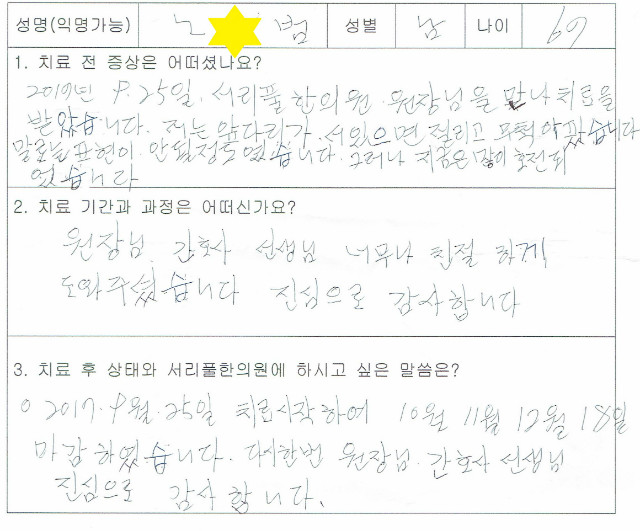 성명(익명가능) 노 범 성별 남 나이 69
1. 치료 전 증상은 어떠셨나요?
2017년 9.25일. 서리풀한의원 원장님을 만나 치료을
받았습니다. 저는 앞다리가 서있으면 절리고
말로는 표현이 안될정도 였습니다. 그러나 지금은 많이 호전되
였습니다
2. 치료 기간과 과정은 어떠신가요?
원장님. 간호사 선생님 너무나 친절 하게
도와주셨습니다 진심으로 감사합니다
3. 치료 후 상태와 서리풀한의원에 하시고 싶은 말씀은?
○ 2017.9월.25일 치료시작하여 10월 11월 12월 18일
마감하였습니다. 다시한번 원장님. 간호사 선생님
진심으로 감사 합니다.